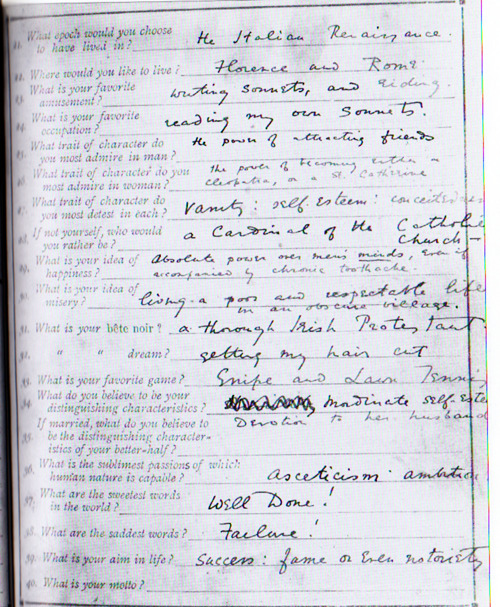 21. What epoch would you choose
to have lived in? the Italian Renaissance.
22. Where would you like to live? Florence and Rome.
23. What is your favorite
amusement? writing sonnets, and riding.
24. What is your favorite
occupation? reading my own sonnets.
25. What trait of character do
you most admire in man? the power of attracting friends
26. What trait of character do you
most admire in woman? the power of becoming either a
Cleopatra, or a St. Catherine
27. What trait of character do
you most detest in each? Vanity: self-esteem: conceitedness
28. If not yourself, who would
you rather be? a Cardinal of the Catholic
Church –
29. What is your idea of
happiness? absolute power over men's minds, even if
accompanied by chronic toothache.
30. What is your idea of
misery? living a poor and respectable life
in an obscure village.
31. What is your bête noir? a thorough Irish Protestant.
32. " " dream? getting my hair cut
33. What is your favorite game? Snipe and Lawn Tennis
34. What do you believe to be your
distinguishing characteristics? inordinate self-estee
35. If married, what do you believe to
be the distinguishing character-
istics of your better-half? Devotion to her husband
36. What is the sublimest passions of which
human nature is capable? asceticism. ambition
37. What are the sweetest words
in the world? Well Done!
38. What are the saddest words? Failure!
39. What is your aim in life? Success: fame or even notoriety
40. What is your motto?